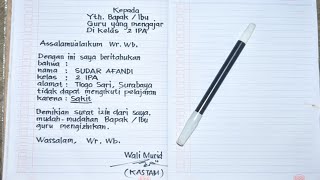 Kepada
Yth. Bapak / Ibu
Guru yang mengajar
Di kelas "2 IPA"
Assalamu'alaikum Wr. Wb.
Dengan ini saya beritahukan
bahwa :
nama : SUDAR AFANDI
kelas : 2 IPA
alamat : Tlogo Sari, Surabaya
tidak dapat mengikuti pelajaran
karena : Sakit
Demikian surat izin dari saya,
mudah-mudahan Bapak / Ibu
guru mengizinkan.
Wassalam, Wr. Wb.
Wali Murid
(KASTAM)